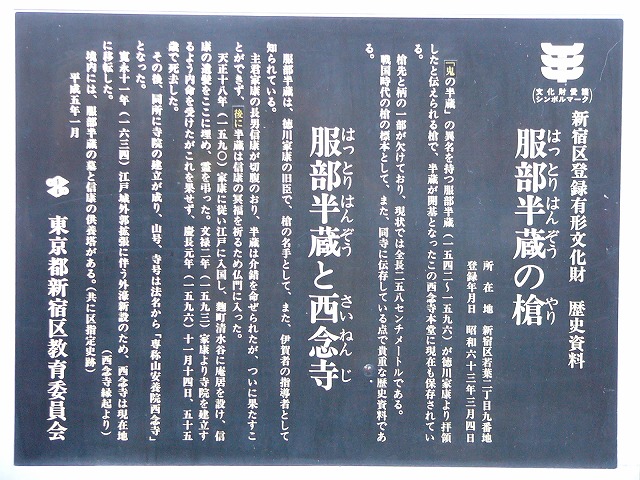 文化財愛護
シンボルマーク
新宿区登録有形文化財　歴史資料
はっとりはんぞう　やり
服部半蔵の槍
所在地　新宿区若葉二丁目九番地
登録年月日　昭和六十三年三月四日
「鬼の半蔵」の異名を持つ服部半蔵（一五四二〜一五九六）が徳川家康より拝領
したと伝えられる槍で、半蔵が開基となったこの西念寺本堂に現在も保存されてい
る。
槍先と柄の一部が欠けており、現状では全長二五八センチメートルである。
戦国時代の槍の標本として、また、同寺に伝存している点で貴重な歴史資料であ
る。
はっとりはんぞう　さいねんじ
服部半蔵と西念寺
服部半蔵は、徳川家康の旧臣で、槍の名手として、また、伊賀者の指導者として
知られている。
主君家康の長男信康が切腹のおり、半蔵は介錯を命ぜられたが、ついに果たすこ
とができず、後に半蔵は信康の冥福を祈るため仏門に入った。
天正十八年（一五九〇）家康に従い江戸に入国し、麹町清水谷に庵居を設け、信
康の遺髪をここに埋め、霊を弔った。文禄二年（一五九三）家康より寺院を建立す
るよう内命を受けたがこれを果せず、慶長元年（一五九六）十一月十四日、五十五
歳で死去した。
その後、同所に寺院の建立が成り、山号、寺号は法名から「専称山安養院西念寺」
となった。
寛永十一年（一六三四）江戸城外郭拡張に伴う外濠新設のため、西念寺は現在地
に移転した。
（西念寺縁起より）
境内には、服部半蔵の墓と信康の供養塔がある。（共に区指定史跡）
平成五年一月
東京都新宿区教育委員会